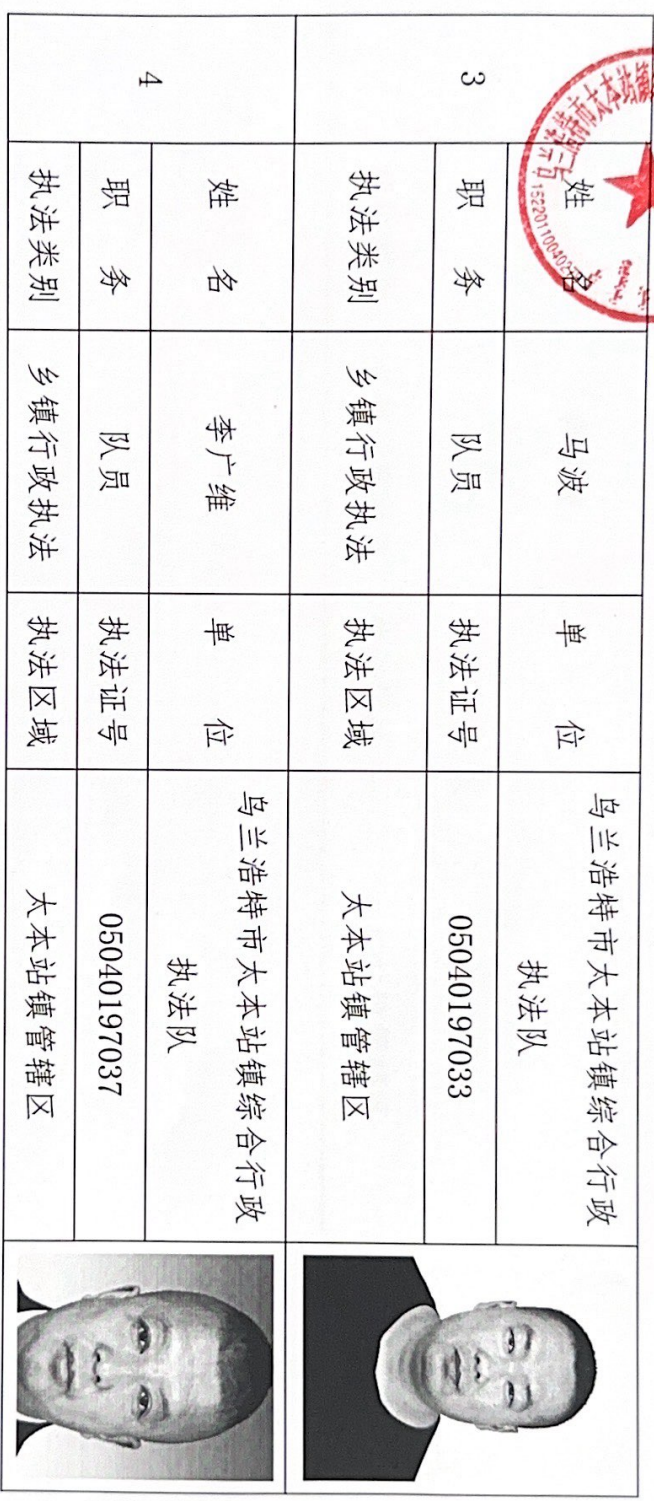 3
姓 名
马波
单 位
乌兰浩特市太本站镇综合行政
执法队
职 务
队员
执法证号
05040197033
执法类别
乡镇行政执法
执法区域
太本站镇管辖区
4
姓 名
李广维
单 位
乌兰浩特市太本站镇综合行政
执法队
职 务
队员
执法证号
05040197037
执法类别
乡镇行政执法
执法区域
太本站镇管辖区
乌兰浩特市太本站镇